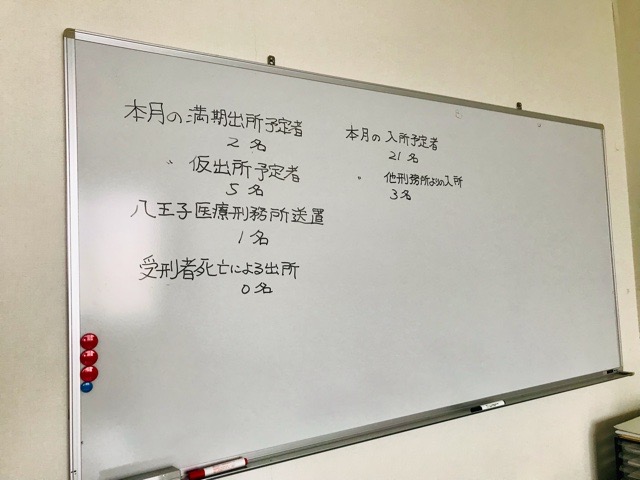 本月の満期出所予定者
2名
〃 仮出所予定者
5名
八王子医療刑務所送置
1名
受刑者死亡による出所
0名
本月の入所予定者
21名
〃 他刑務所よりの入所
3名